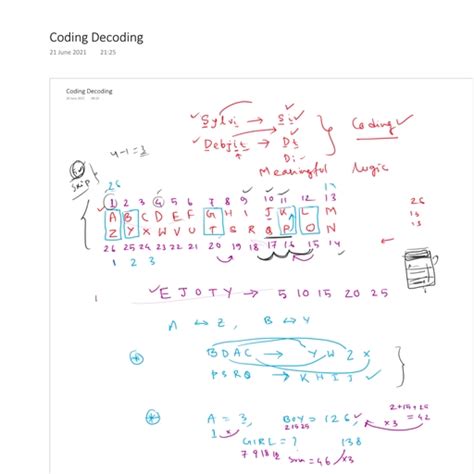 Coding Decoding
21 June 2021 21:25
Coding Decoding
Sylvi → Si
Debjit → Dt
Di
Coding
Meaningful Logic
4-1=3
Skip
26
1 2 3 4 5 6 7 8 9 10 11 12 13
A B C D E F G H I J K L M
Z Y X W V U T S R Q P O N
26 25 24 23 22 21 20 19 18 17 16 15 14
1 2 3
26
13
13
E J O T Y → 5 10 15 20 25
A ↔ Z, B ↔ Y
BDAC → YWZX
PSRQ → KHIJ
A = 3, BOY = 126
1 × 2 15 25
2+15+25
= 42
×3
GIRL = ? 138
7 9 18 12 Sum = 46 ×3